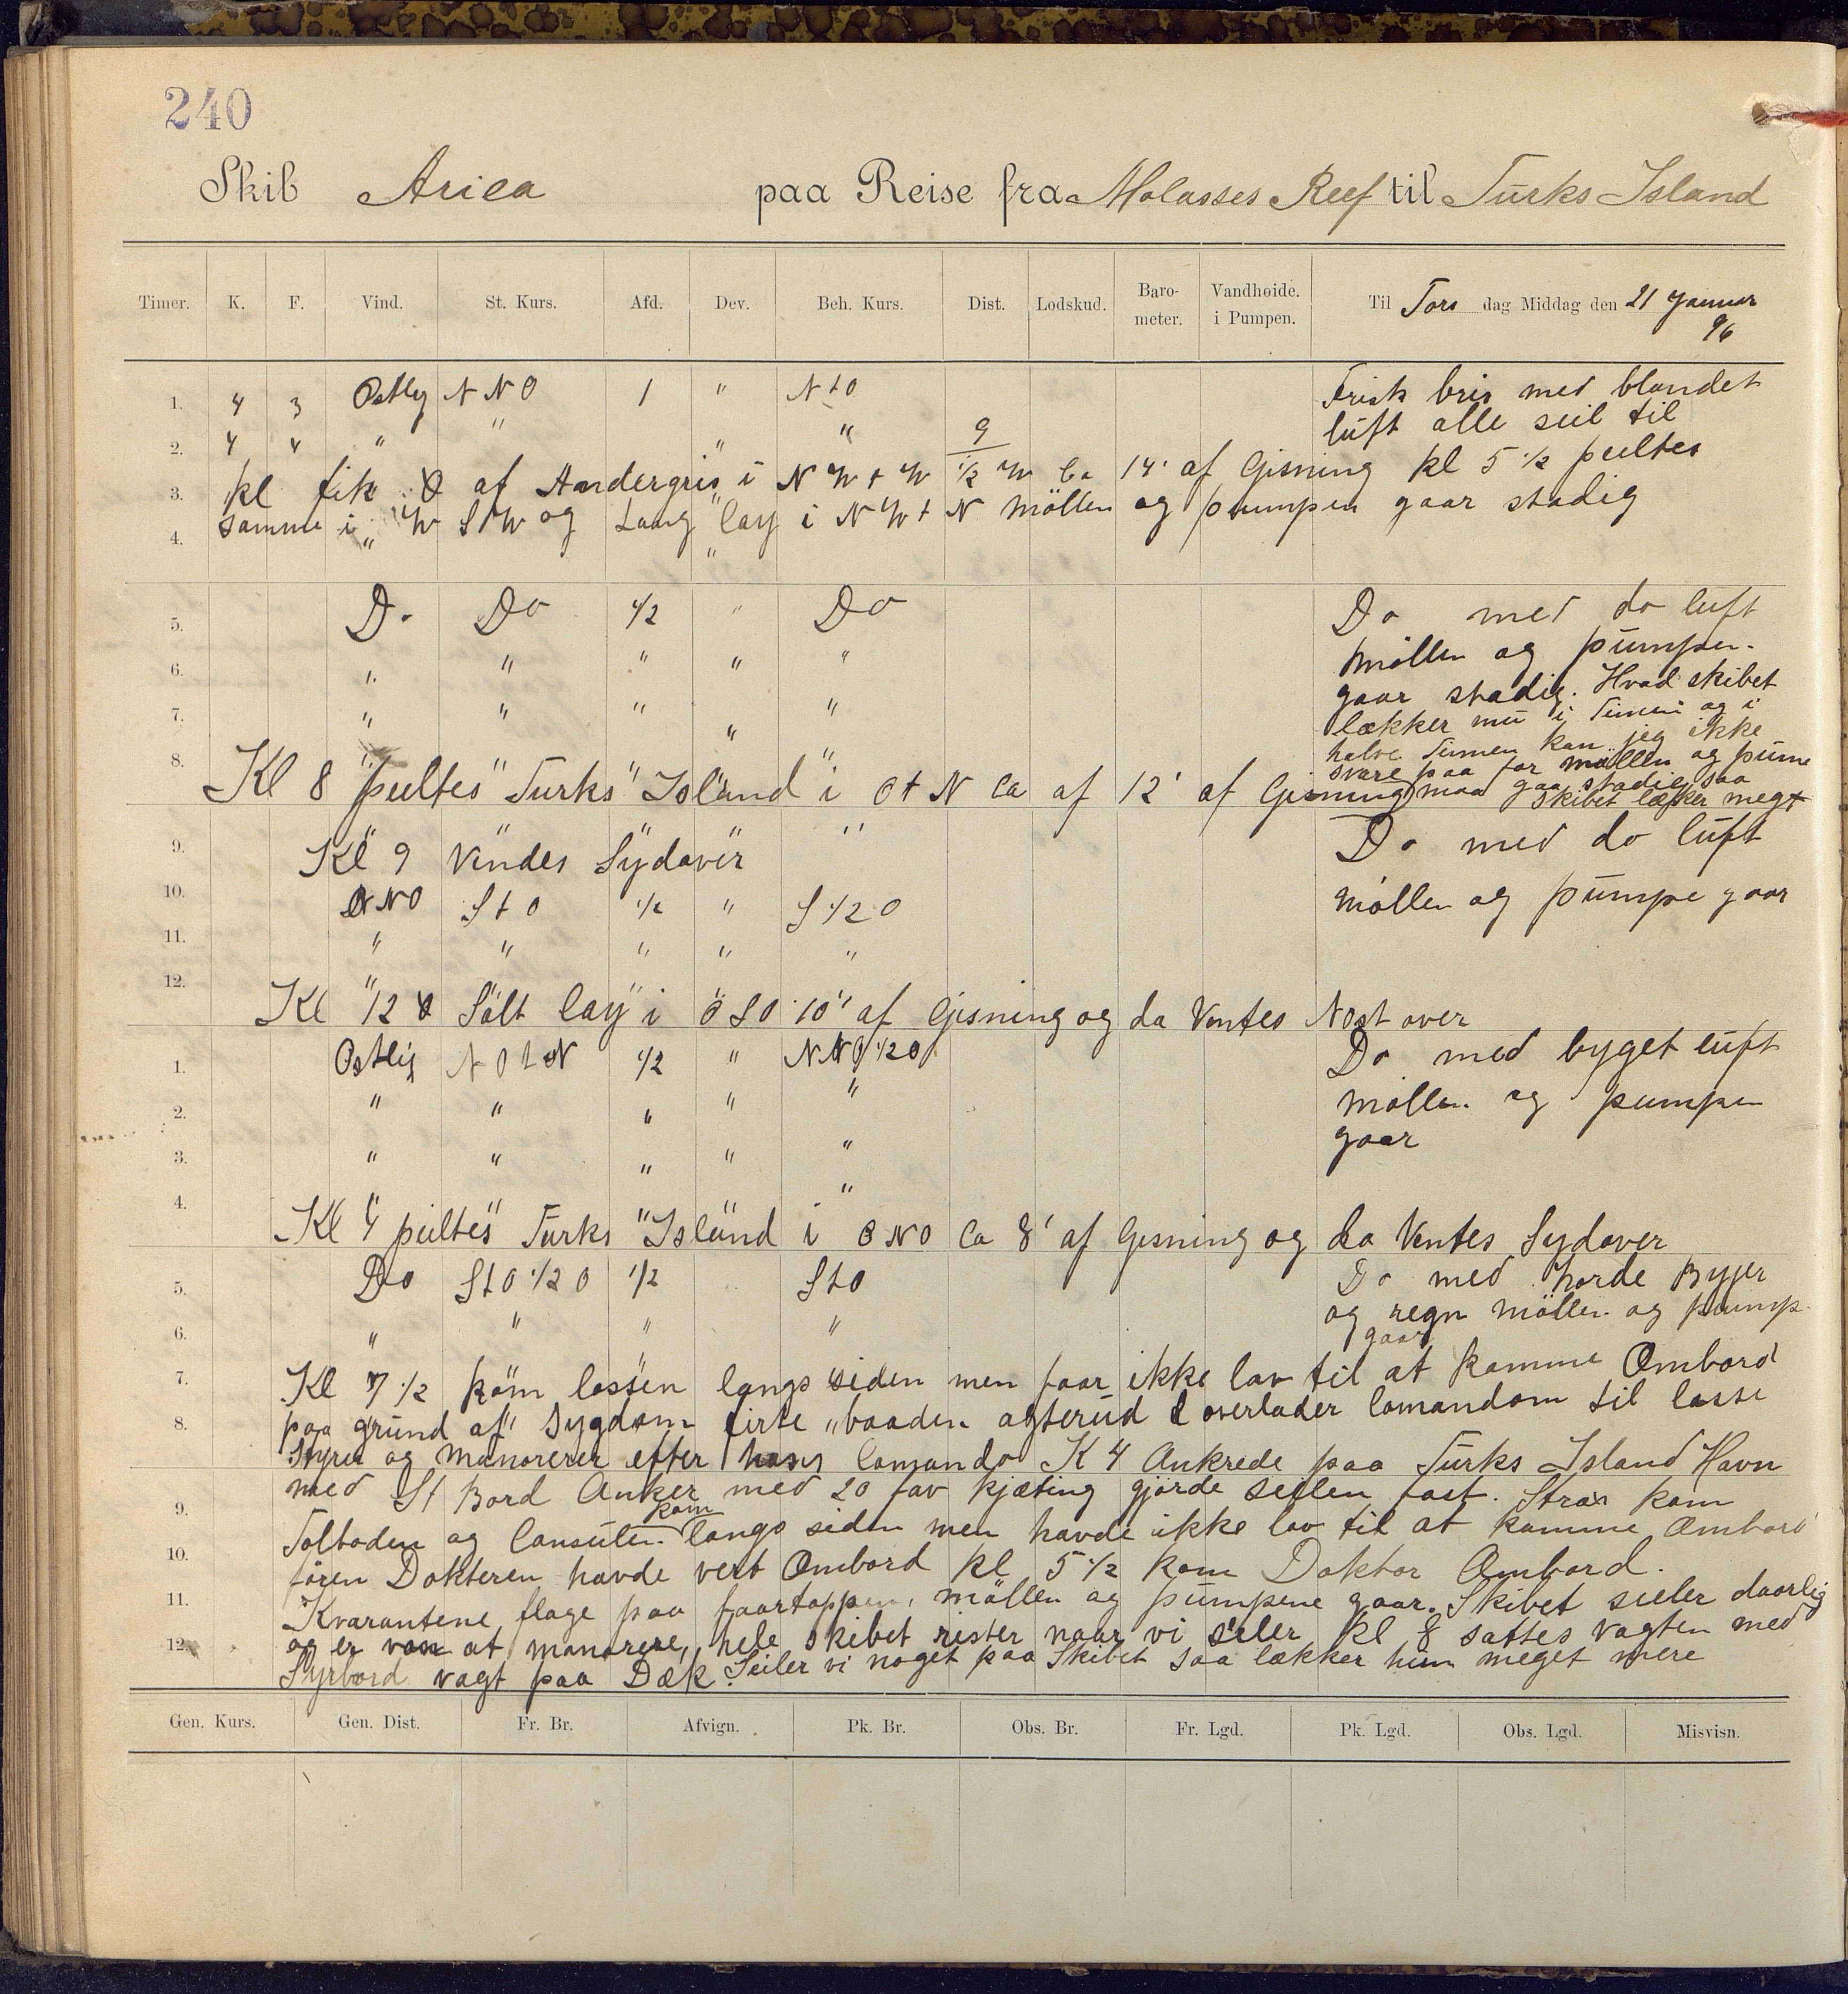 240
Skib Arica paa Reise fra Molasses Reef til Turks Island
Timer. K. F. Vind. St. Kurs. Afd. Dev. Beh. Kurs. Dist. Lodskud. Baro-meter. Vandhøide. i Pumpen. Til Tors dag Middag den 21 Januar 96
1. 4 3 Ostlig N N O 1 " N t O Frisk bris med blandet
2. 4 4 " " " " 9 luft alle seil til
3. kl fik af Andergris i N W t W 1/2 W Ca 14' af Gisning kl 5 1/2 peiltes
4. samme i W S t W og Lang Cay i N W t N Möllen og pumpen gaar stadig
5. Do Do 1/2 " Do Do med do luft
6. " " " " " Möllen og pumpen.
7. " " " " " gaar stadig. Hvad skibet
lækker nu i Timen og i
halve Timen kan jeg ikke
8. svare paa for möllen og pume
maa gaa stadig saa
Skibet lækker megt
Kl 8 peiltes Turks Island i O t N Ca af 12' af Gisning
9. " " " " " Do med do luft
Kl 9 Vendes Sydover
10. N N O S t O 1/2 " S 1/2 O möllen og pumpe gaar
11. " " " " "
12. Kl 12 Salt Cay i O S O 10' af Gisning og da Ventes Nost over
1. Ostlig N O t N 1/2 " N N O 1/2 O Do med byget luft
2. " " " " " möllen og pumpen
3. " " " " " gaar
4. Kl 4 peiltes Turks Island i O N O Ca 8' af Gisning og da Ventes Sydover
5. Do S t O 1/2 O 1/2 S t O Do med harde Byger
6. " " " " og regn möllen og pump.
gaar
7. Kl 7 1/2 kom lossen langs siden men faar ikke lov til at komme Ombord
8. paa grund af Sygdom firte baaden agterud & overlader Comandom til losse
Styrer og Manorerer efter hans Comando K 4 Ankrede paa Turks Island Havn
med St Bord Anker med 20 fav kjæting gjorde seilen fast. Strax kom
9. Tolboden og Consulen kom langs siden men havde ikke lov til at komme Ombord
10. fören Dokteren havde vert Ombord kl 5 1/2 kom Doktor Ombord.
11. Kvarantene flage paa foortoppen, möllen og pumpene gaar. Skibet seiler daarlig
12. og er van at manorere, hele skibet rister naar vi seiler kl 8 sattes vagten med
Styrbord vagt paa Dæk. Seiler vi noget paa Skibet saa lækker hun meget mere
Gen. Kurs. Gen. Dist. Fr. Br. Afvign. Pk. Br. Obs. Br. Fr. Lgd. Pk. Lgd. Obs. Lgd. Misvisn.